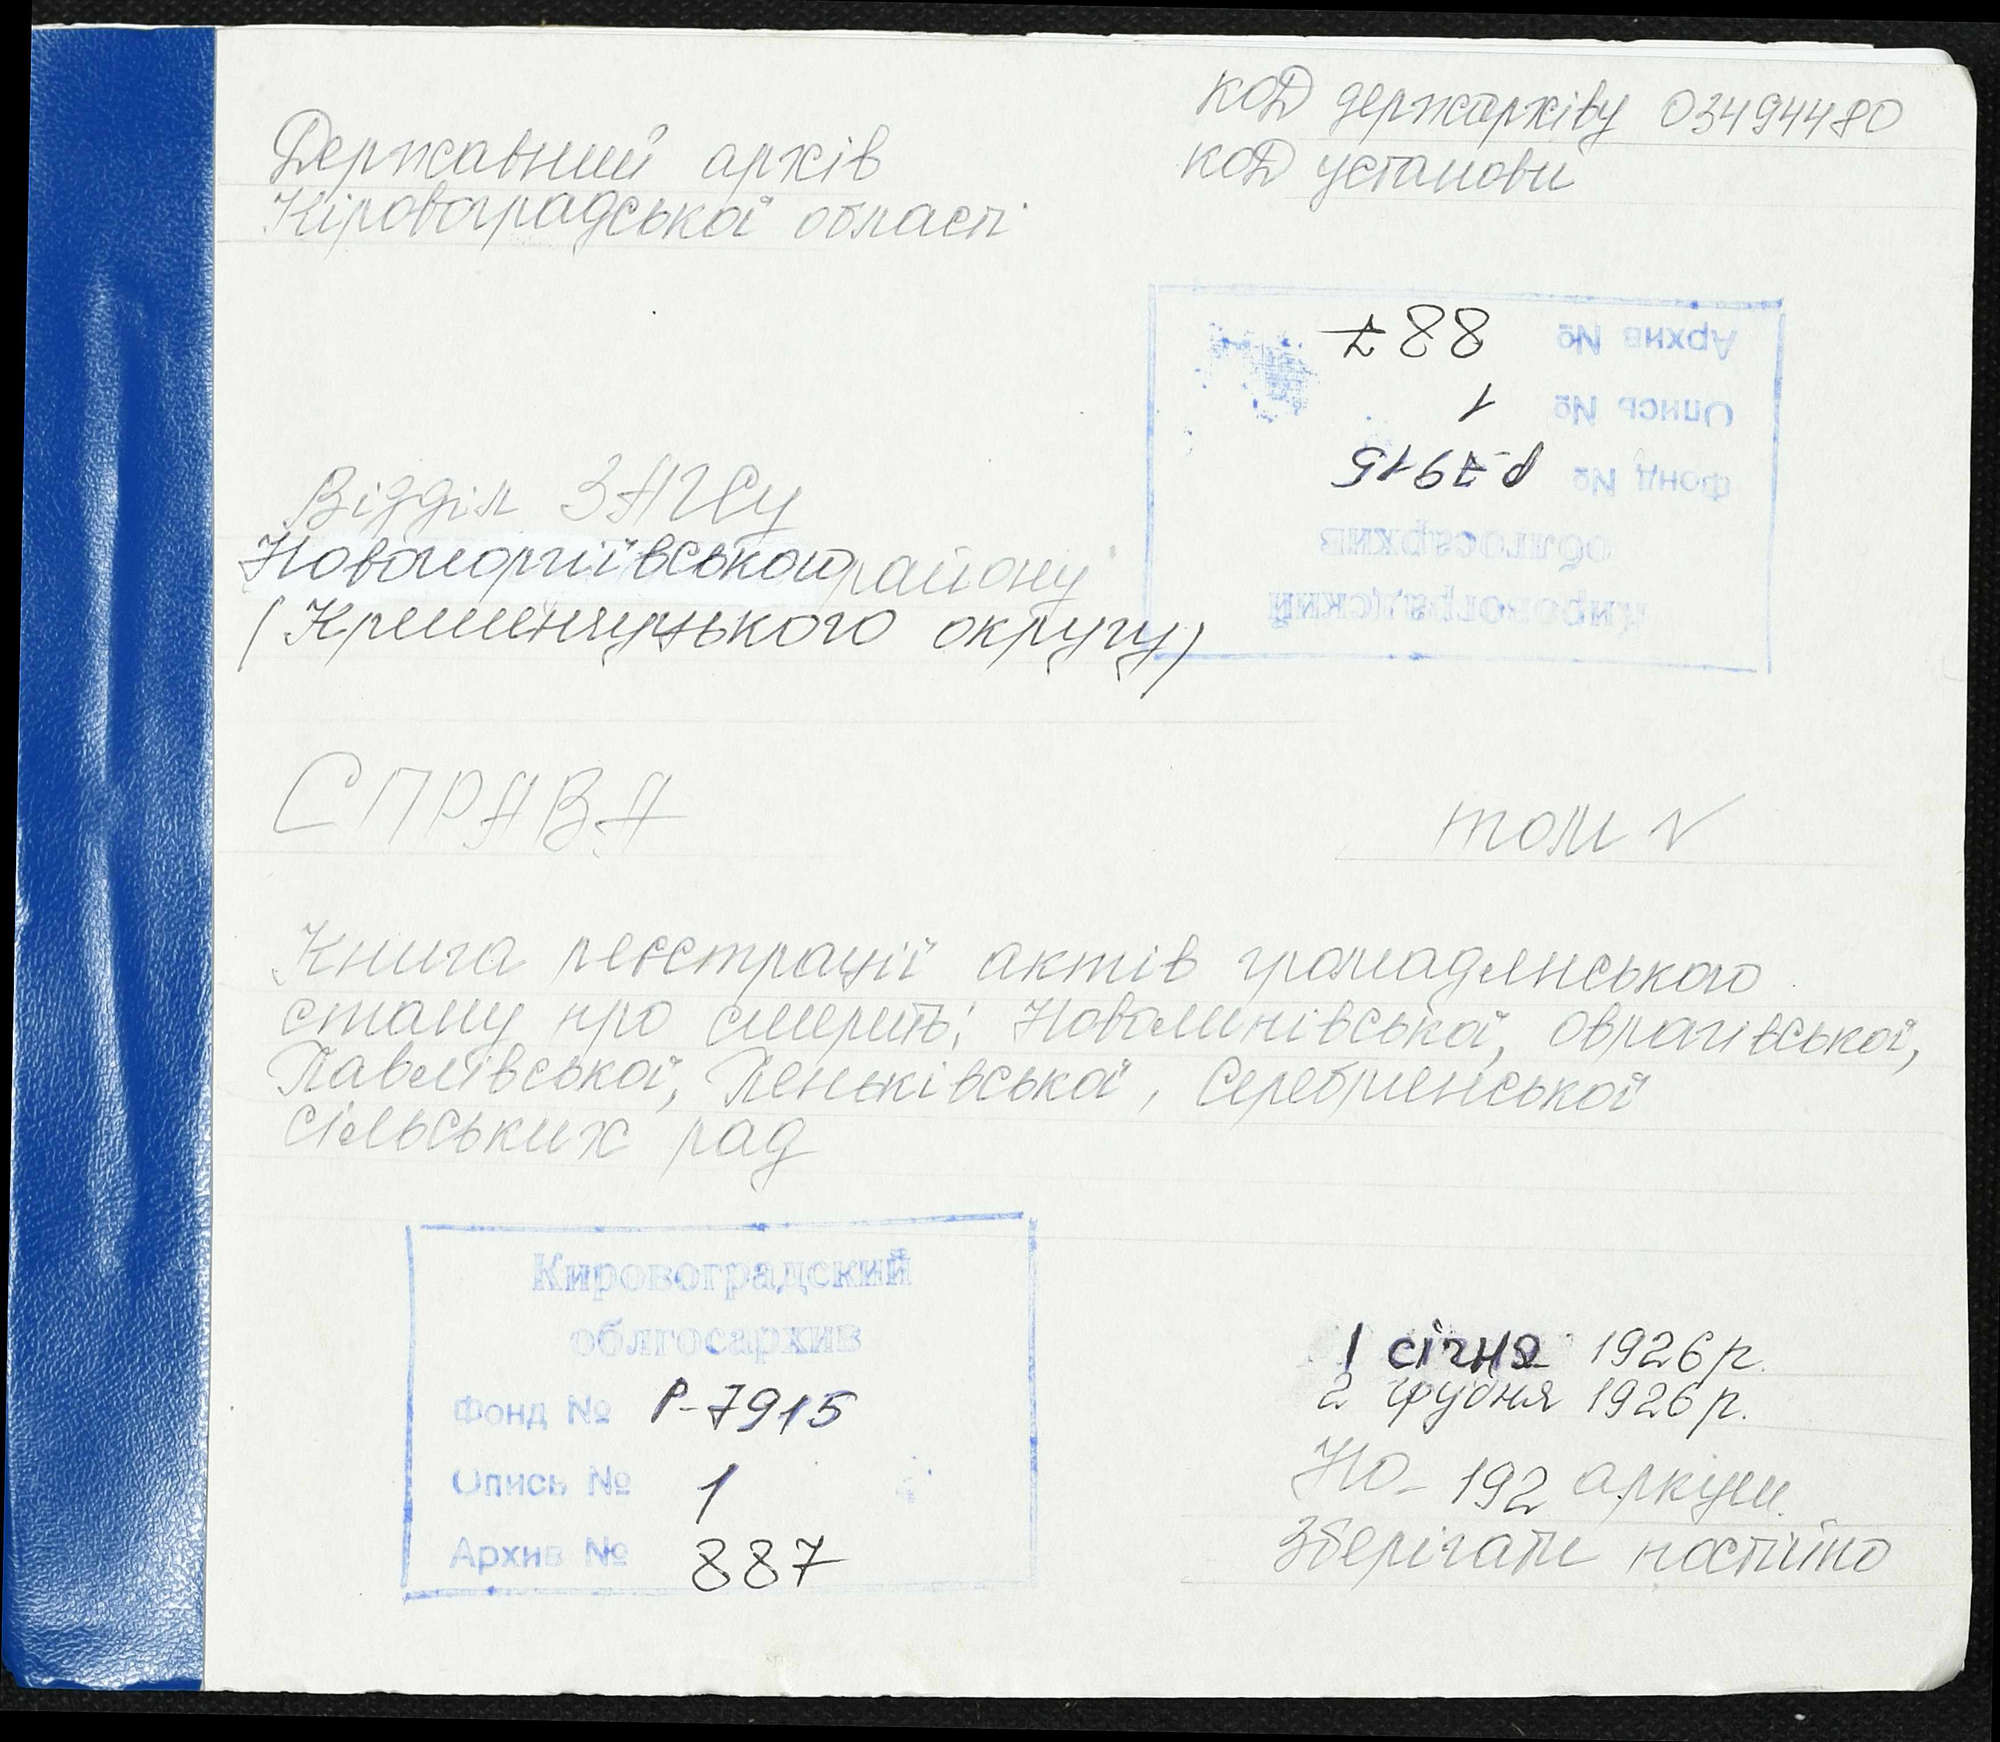 код держархіву 03494480
код установи
Державний архів
Кіровоградської області
Архив № 887
Опись № 1
Фонд № Р-7915
облгосархив
Кировоградский
Відділ ЗАГСу
Новогоргіївського району
(Кременчуцького округу)
СПРАВА
том №
Книга реєстрації актів громадянського
стану про смерть: Новолипівської, Оврагівської,
Павлівської, Пеньківської, Серебрненської
сільських рад
Кировоградский
облгосархив
Фонд № Р-7915
Опись № 1
Архив № 887
1 січня 1926 р.
2 грудня 1926 р.
На - 192 аркуш.
Зберігати постійно